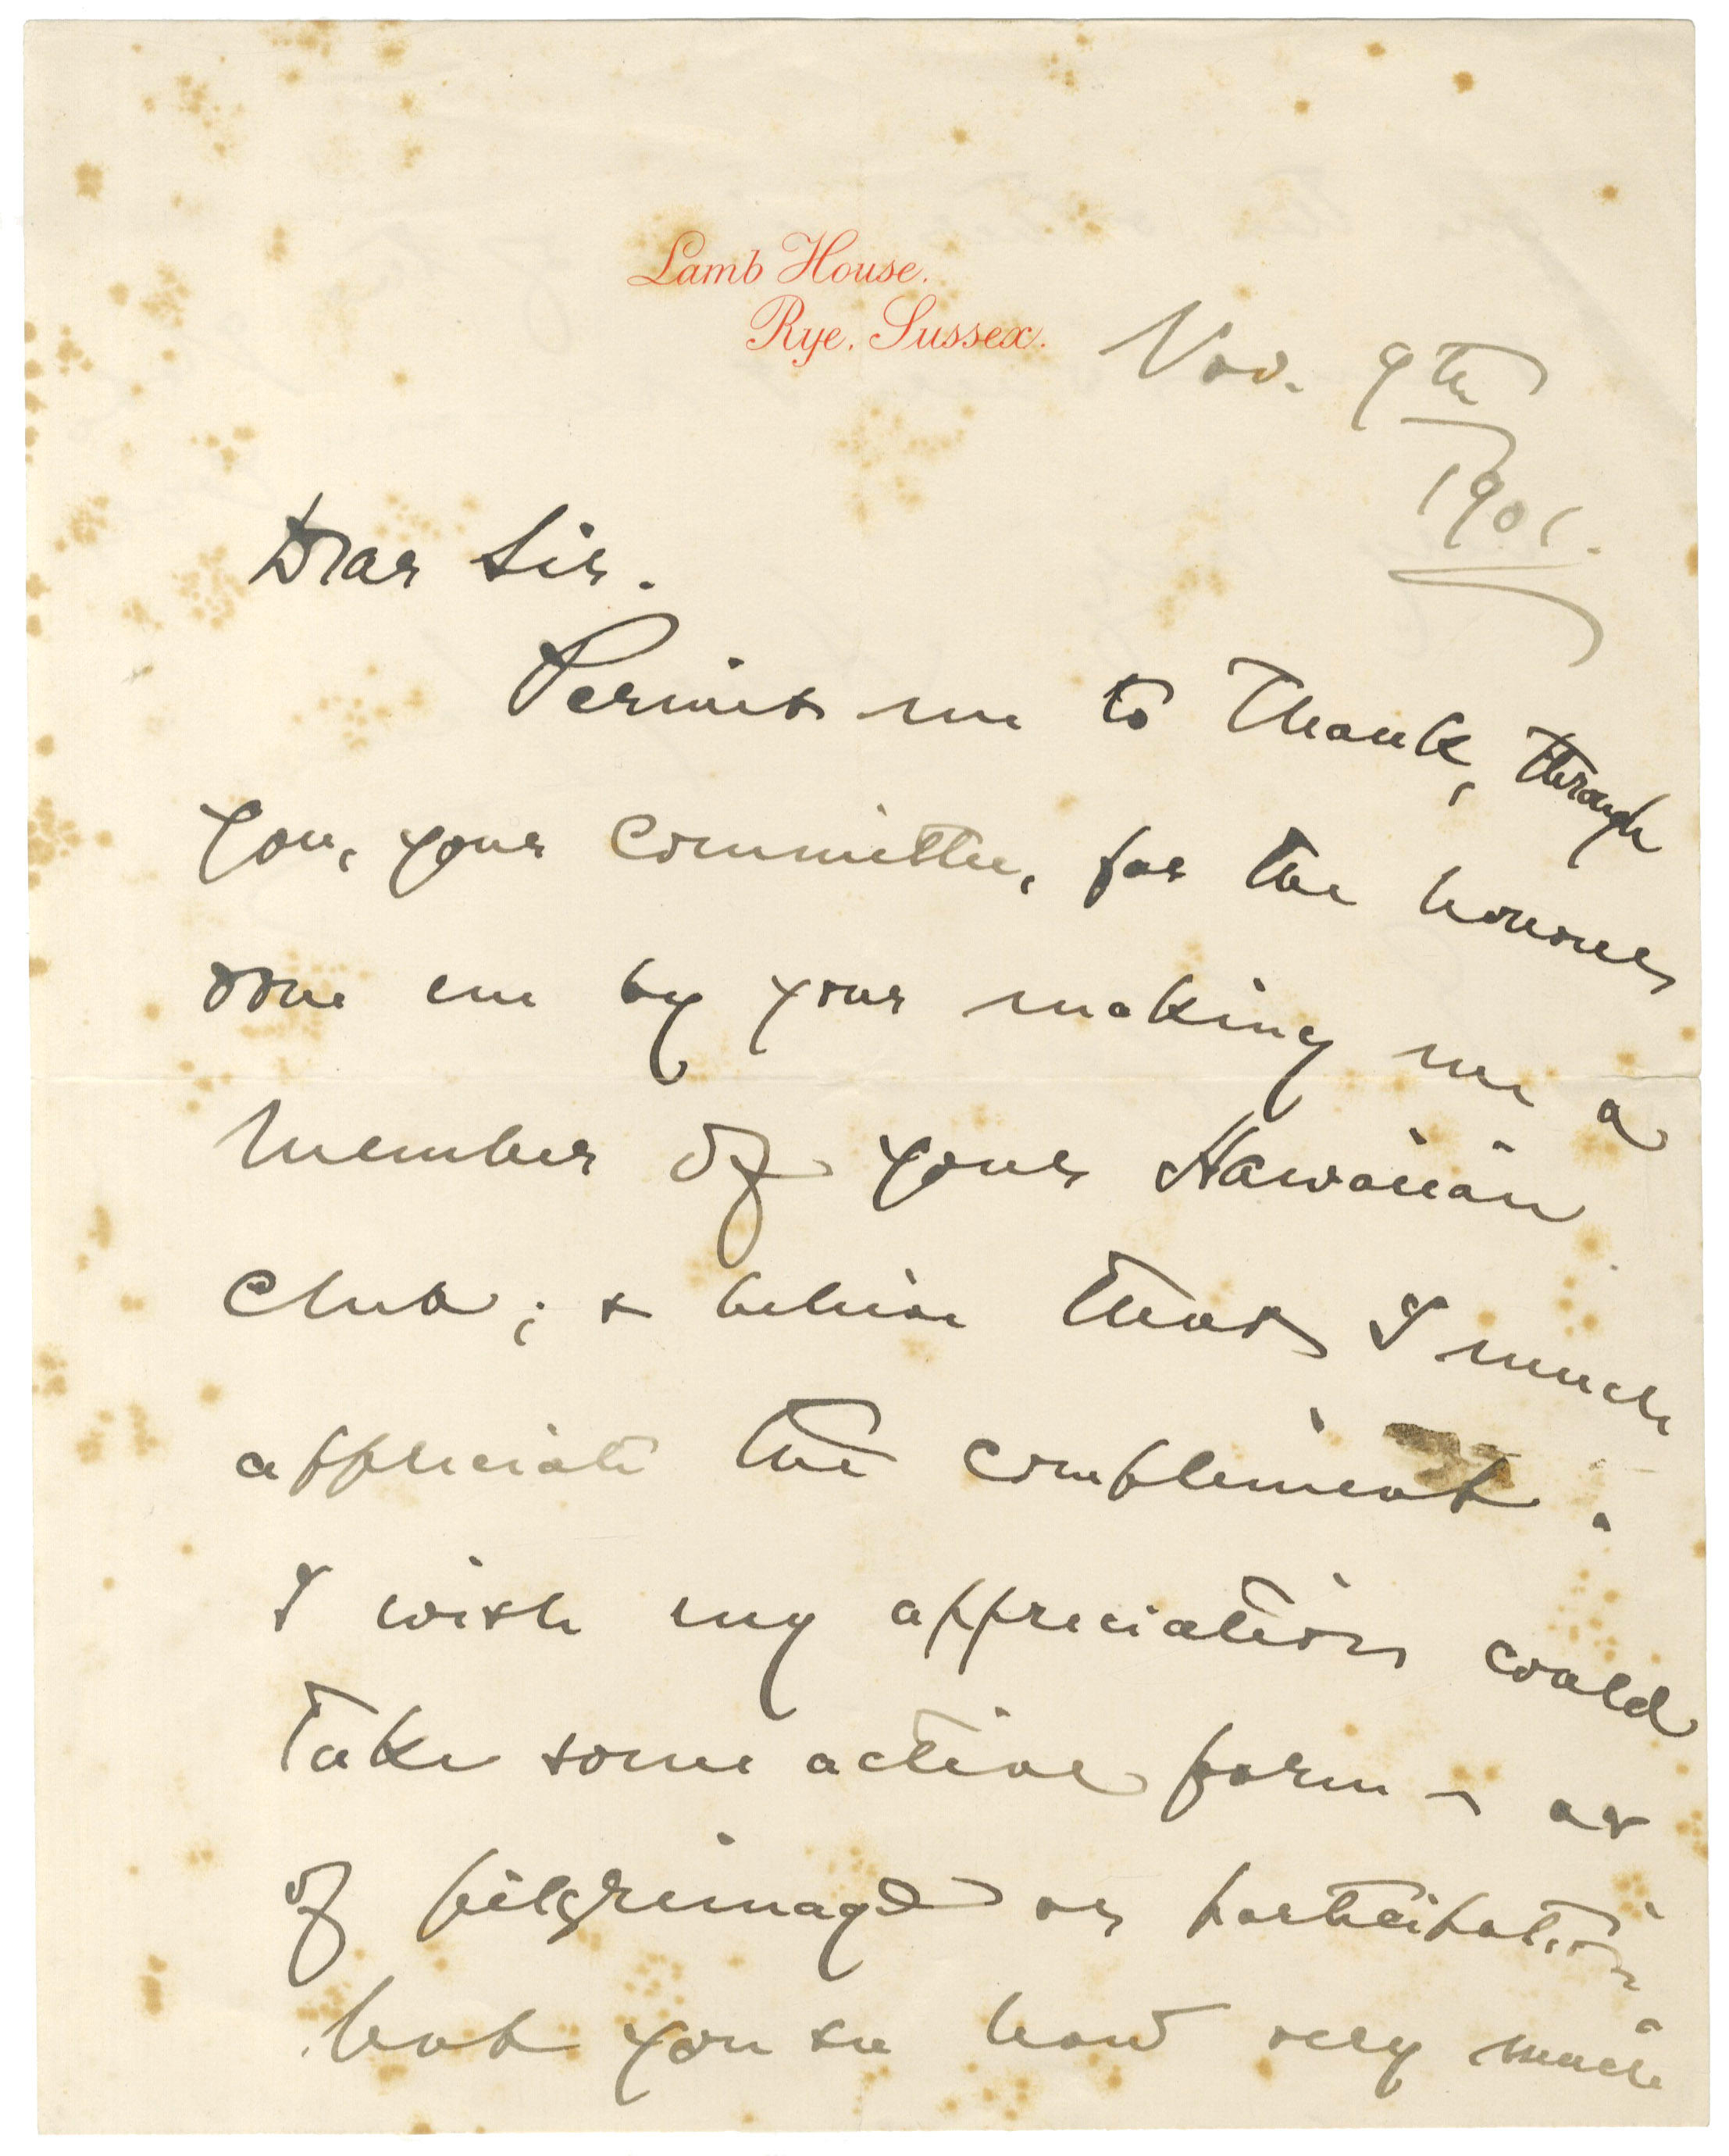 Lamb House.
Rye. Sussex.
Nov. 9th
1901.
Dear Sir.
Permit me to thank, through
you, your Committee, for the honour
done me by your making me a
member of your Hawaiian
Club; & believe that I much
appreciate the compliment.
I wish my appreciation could
take some active form - as
of pilgrimage or participation
but you see how very much